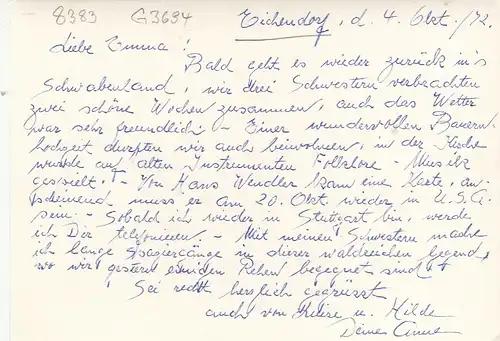 8383 G3694
Eichendorf, d. 4. Okt. /72.
Liebe Emma!
Bald geht es wieder zurück in's
Schwabenland, wir drei Schwestern verbrachten
zwei schöne Wochen zusammen, auch das Wetter
war sehr freundlich. - Einer wundervollen Bauern
hochzeit durften wir auch beiwohnen, in der Kirche
wurde auf alten Instrumenten Folklore - Musik
gespielt. - Von Hans Wendler kam eine Karte, an-
scheinend muss er am 20. Okt. wieder in U.S.A.
sein. - Sobald ich wieder in Stuttgart bin, werde
ich Dir telefonieren. - Mit meinen Schwestern mache
ich lange Spaziergänge in dieser waldreichen Gegend,
wo wir gestern einigen Rehen begegnet sind!
Sei recht herzlich gegrüsst
auch von u. Hilde
Deine Anne